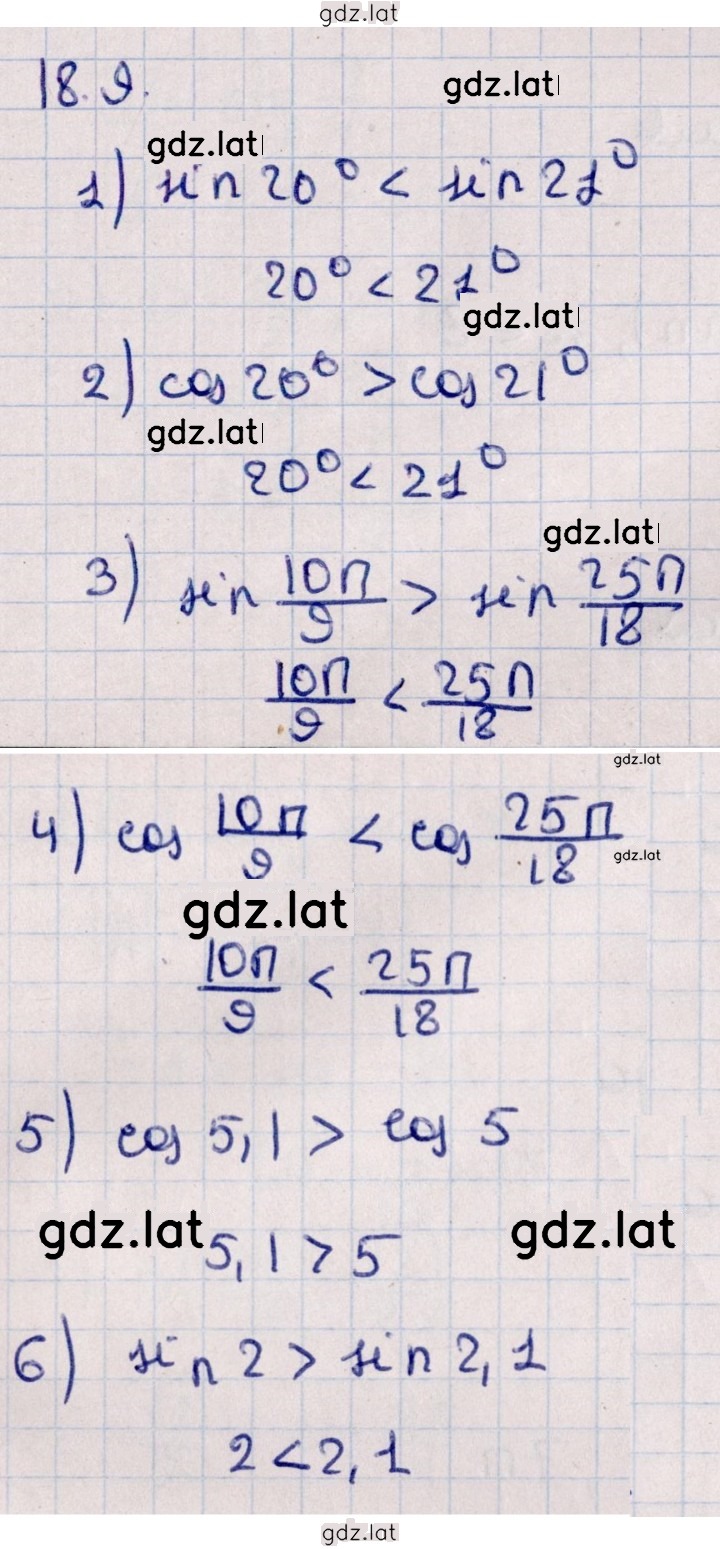 gdz.lat
18.9.
gdz.lat
gdz.lat
1) sin 20° < sin 21°
20° < 21°
gdz.lat
2) cos 20° > cos 21°
gdz.lat
20° < 21°
gdz.lat
3) sin 10П/9 > sin 25П/18
10П/9 < 25П/18
gdz.lat
4) cos 10П/9 < cos 25П/18
gdz.lat
gdz.lat
10П/9 < 25П/18
5) cos 5,1 > cos 5
gdz.lat gdz.lat
5,1 > 5
6) sin 2 > sin 2,1
2 < 2,1
gdz.lat